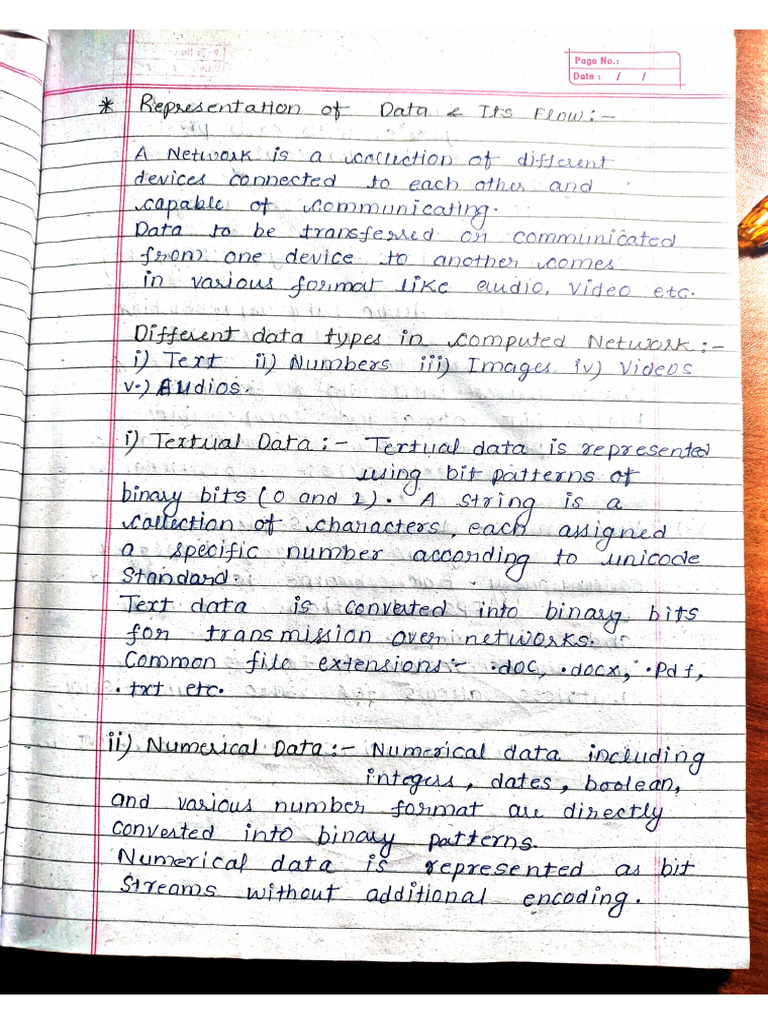 Page No.:
Date : / /
* Representation of Data & Its Flow :-
A Network is a collection of different
devices connected to each other and
capable of communicating.
Data to be transferred or communicated
from one device to another comes
in various format like audio, video etc.
Different data types in computed Network :-
i) Text ii) Numbers iii) Images iv) Videos
v.) Audios.
i) Textual Data :- Textual data is represented
using bit patterns of
binary bits (0 and 1). A string is a
collection of characters, each assigned
a specific number according to unicode
Standard.
Text data is converted into binary bits
for transmission over networks.
Common file extensions :- .doc, .docx, .Pdf,
.txt etc.
ii) Numerical Data :- Numerical data including
integers, dates, boolean,
and various number format are directly
converted into binary patterns.
Numerical data is represented as bit
Streams without additional encoding.